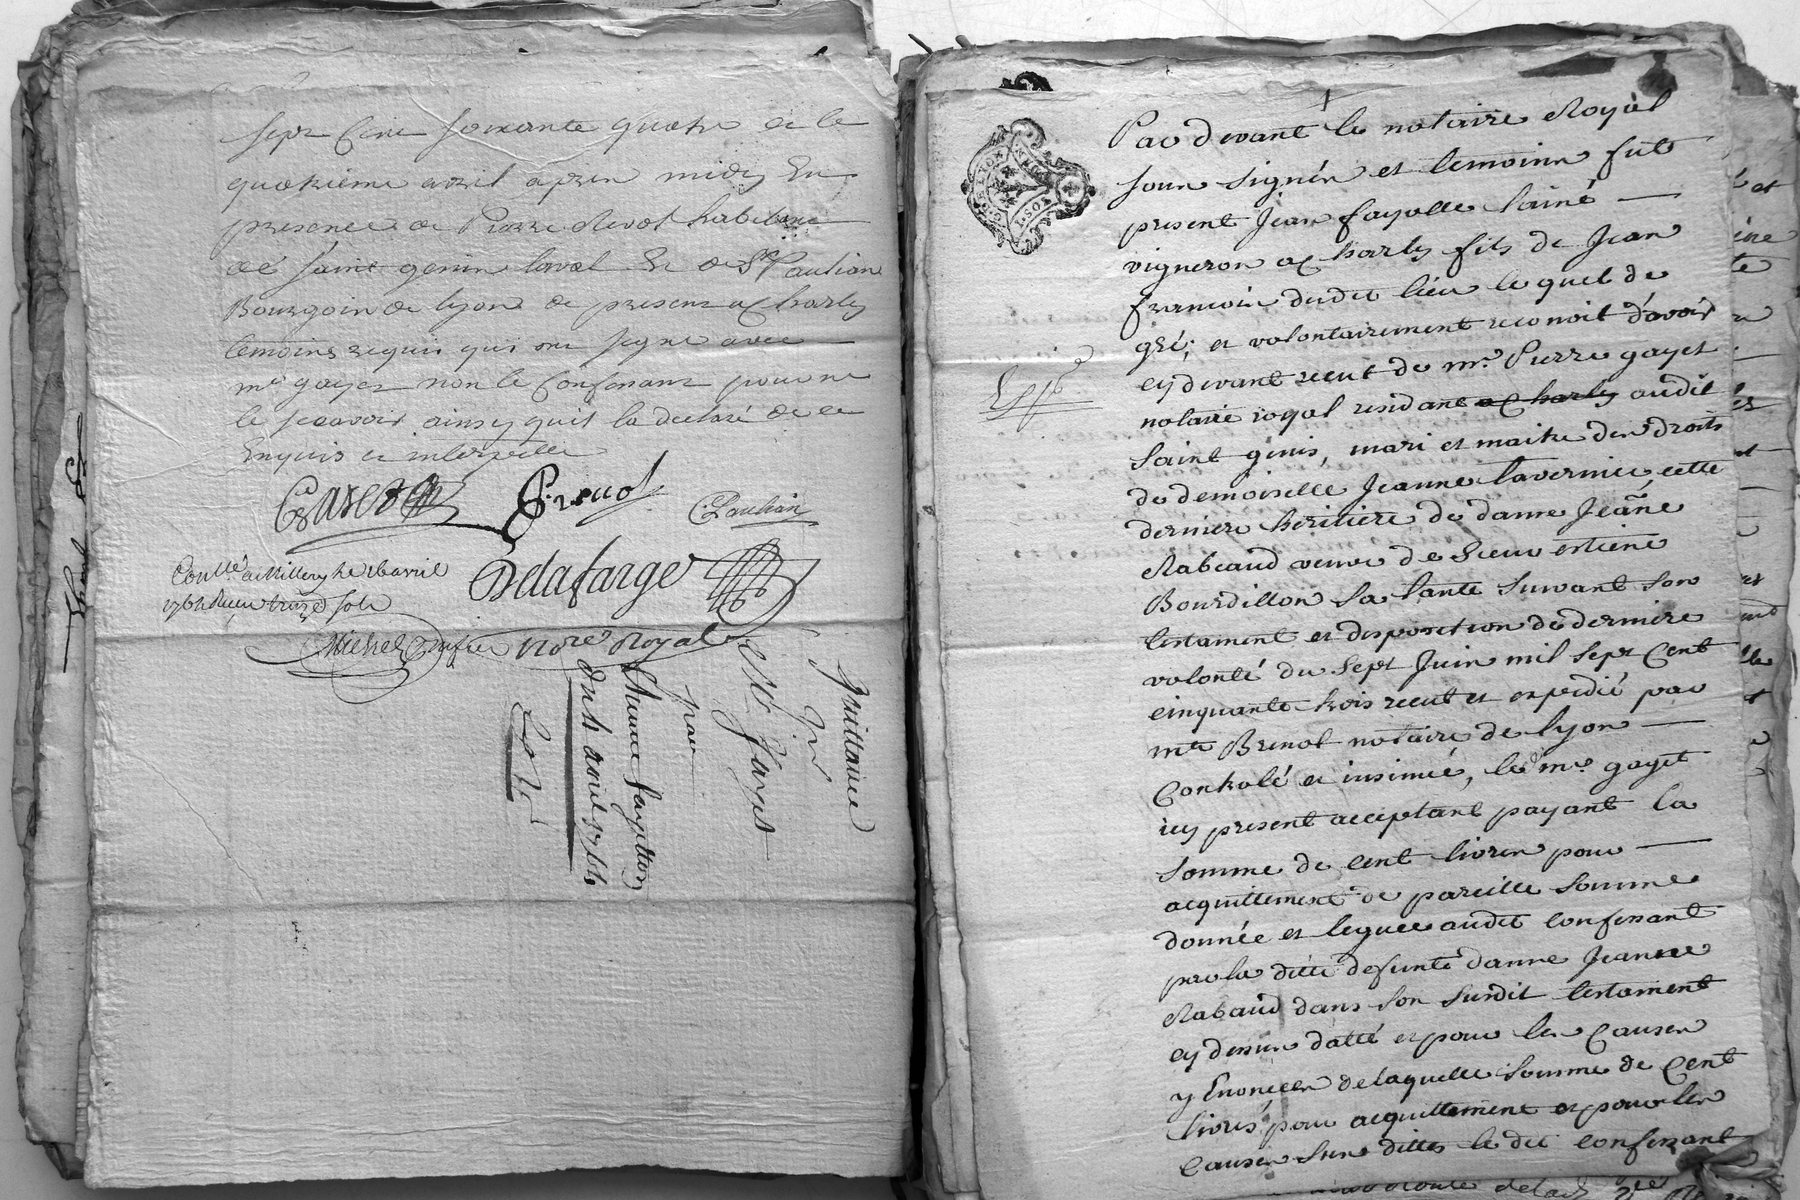 sept Cent soixante quatre et le
quatrieme avril apres midy En
presence de Pierre Revol habitant
de saint genin laval Et de Sr Paulian
Bourgoin de lyon de present a Charly
temoins requis qui ont signe avec
me gayet non le Confessant pour ne
le scavoir ainsy quil la declaré de ce
Enquis et interpellé
Gayet
P. revol
C. Paulian
Delafarge
Contlé a Millery le 16 avril
1764 Receu treize sols
Michel Dufie
Nore Royal
quittance
Pr
par
du 4 avril 1764
Par devant le notaire Royal
soun signén et temoinn fut
present Jean fayolle lainé
vigneron a Charly fils de Jean
francoin dudit lieu lequel de
gré, et volontairement reconoit d'avoir
cy devant receut de mr. Pierre gayet
notaire royal residant a Charly audit
Saint genis, mari et maitre den droits
de demoiselle Jeanne Tavernier, cette
derniere heritiere de dame Jeanne
Rabeaud veuve de Sieur estiene
Bourdillon sa tante suivant son
testament et disposition de derniere
volonté du sept Juin mil sept Cent
cinquante trois receut et expedié par
me Brenot notaire de lyon
Controlé et insinué, le mr. gayet
icy present acceptant payant la
somme de cent livren pour
acquittement de pareille somme
donnée et leguée audit confessant
par la ditte defunte dame Jeanne
Rabaud dans son susdit testament
cy dessun datté et pour len Causen
y Enonceen de laquelle somme de Cent
livres pour acquittement et pour len
Causen sun dittes le dit confessant